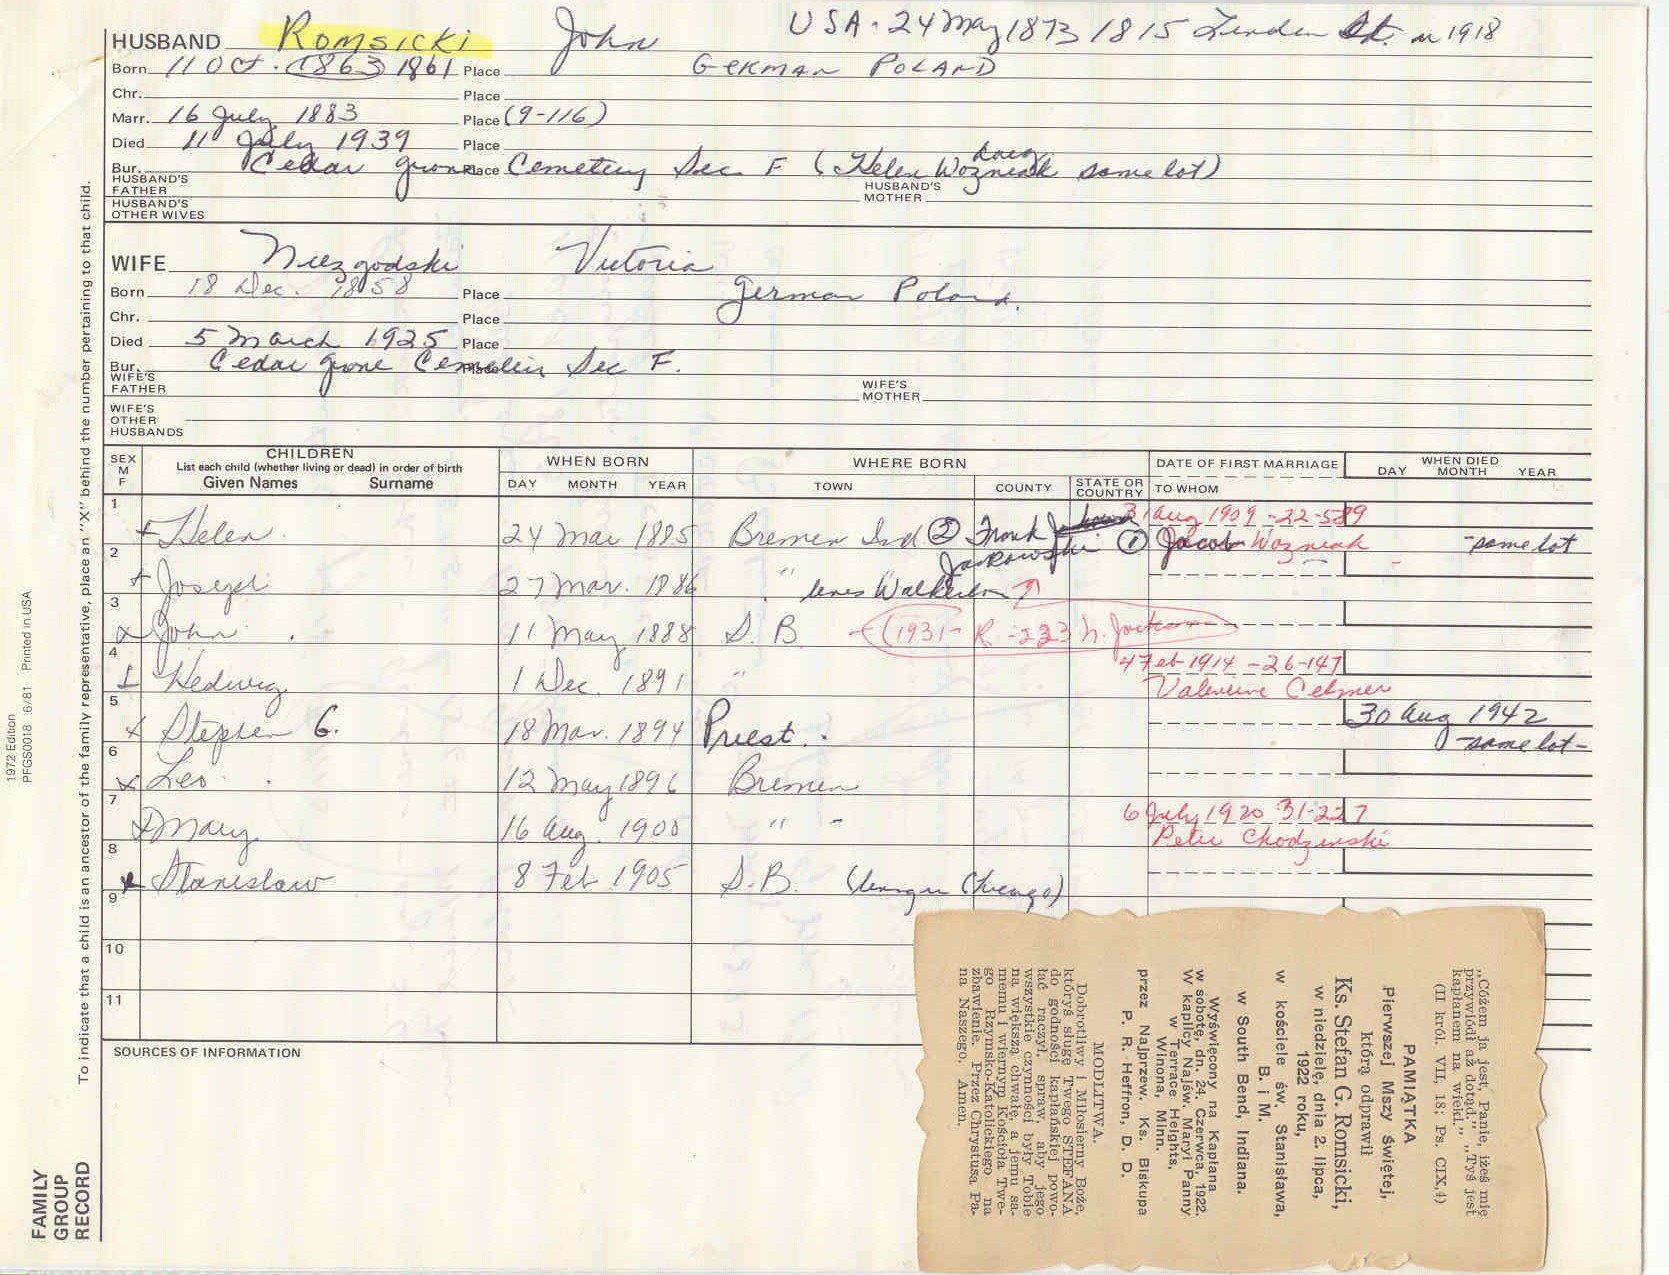 USA - 24 May 1873 1815 Linden St. in 1918
HUSBAND Romsicki John
Born 11 Oct. 1863 1861 Place GERMAN POLAND
Chr. Place
Marr. 16 July 1883 Place (9-116)
Died 11 July 1939 Place
daug
Bur. Cedar Grove Place Cemetery Sec F (Helen Wozniak same lot)
HUSBAND'S FATHER HUSBAND'S MOTHER
HUSBAND'S OTHER WIVES
WIFE Niezgodski Victoria
Born 18 Dec. 1858 Place German Poland.
Chr. Place
Died 5 March 1925 Place
Bur. Cedar Grove Place Sec F.
WIFE'S FATHER WIFE'S MOTHER
WIFE'S OTHER HUSBANDS
SEX M F
CHILDREN
List each child (whether living or dead) in order of birth
Given Names Surname
WHEN BORN
DAY MONTH YEAR
WHERE BORN
TOWN COUNTY STATE OR COUNTRY
DATE OF FIRST MARRIAGE
TO WHOM
WHEN DIED
DAY MONTH YEAR
1 31 Aug 1909 -22-589
Helen 24 Mar 1885 Bremen Ind ② Frank Jankowski ① Jacob Wozniak -same lot
2
Joseph 27 Mar. 1886 " lives Walkerton
3
x John 11 May 1888 S. B. (1931- R -223 h.
4 4 Feb 1914 -26-147
Hedwig 1 Dec. 1891 " Valentine Celmer
5 30 Aug 1942
x Stephen G. 18 Mar. 1894 Priest. -same lot-
6
x Leo 12 May 1896 Bremen
7 6 July 1920 31-227
Mary 16 Aug. 1900 " - Peter Chodzinski
8
x Stanislaw 8 Feb 1905 S.B. (living in Chicago)
9
10
11
SOURCES OF INFORMATION
To indicate that a child is an ancestor of the family representative, place an "X" behind the number pertaining to that child.
1972 Edition
PFGS0018 6/81 Printed in USA
FAMILY
GROUP
RECORD
„Cóżem ja jest, Panie, iżeś mię
przywiódł aż dotąd." „Tyś jest
kapłanem na wieki."
(II król. VII, 18; Ps. CIX,4)
PAMIĄTKA
Pierwszej Mszy świętej,
którą odprawił
Ks. Stefan G. Romsicki,
w niedzielę, dnia 2. lipca,
1922 roku,
w kościele św. Stanisława,
B. i M.
w South Bend, Indiana.
Wyświęcony na Kapłana
w sobotę, dn. 24, Czerwca, 1922.
W kaplicy Najśw. Maryi Panny
w Terrace Heights,
Winona, Minn.
przez Najprzew. Ks. Biskupa
P. R. Heffron, D. D.
MODLITWA.
Dobrotliwy i Miłosierny Boże,
któryś sługę Twego STEFANA
do godności kapłańskiej powo-
łać raczył, spraw, aby jego
wszystkie czynności były Tobie
na większą chwałę, a jemu sa-
memu i wiernym Kościoła Twe-
go Rzymsko-Katolickiego na
zbawienie. Przez Chrystusa Pa-
na Naszego. Amen.